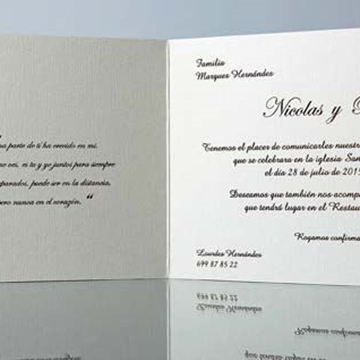 parte de ti ha crecido en mi.
ni tu y yo juntos para siempre
puede ser en la distancia,
pero nunca en el corazón. "
Familia
Marques Hernández
Nicolas y
Tenemos el placer de comunicarles nuestr
que se celebrara en la iglesia San
el día 28 de julio de 201
Deseamos que también nos acomp
que tendrá lugar en el Restau
Rogamos confirm
Lourdes Hernández
699 87 85 22